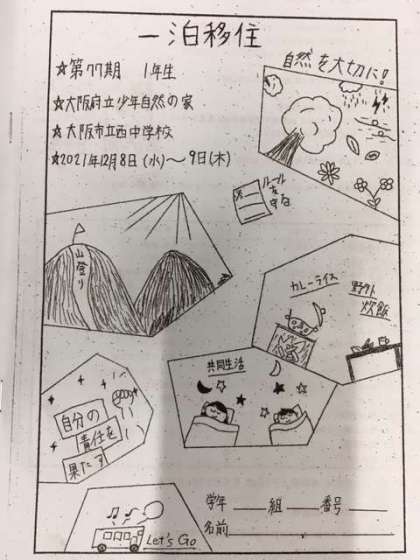 一泊移住
☆第77期 1年生
☆大阪府立少年自然の家
☆大阪市立西中学校
☆2021年12月8日(水)～9日(木)
自然を大切に!
ルールを
守る
山登り
カレーライス
野外
炊飯
共同生活
自分の
責任を
果たす
Let's Go
学年＿＿組＿＿番号＿＿
名前＿＿＿＿